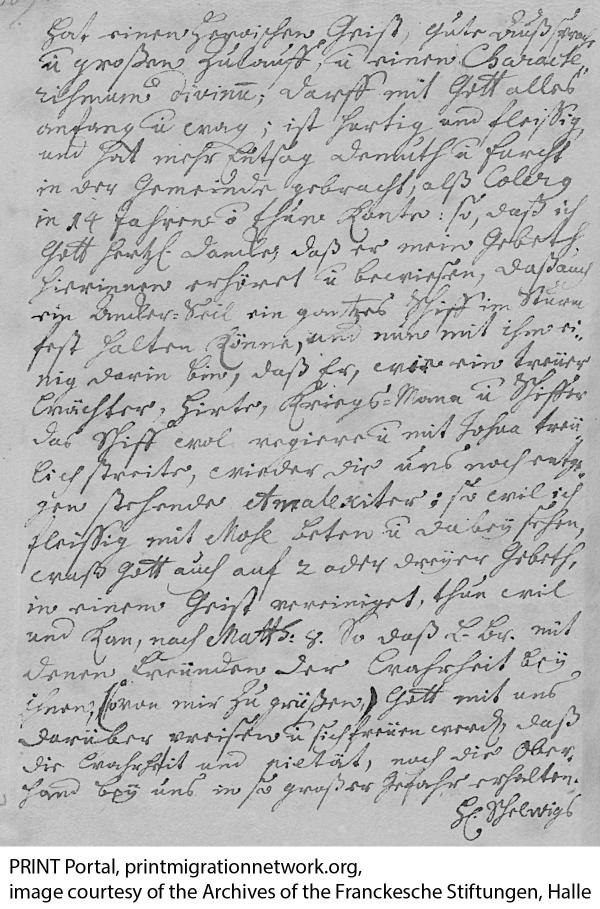 hat einen Heroischen Geist, gute Außsprach,
u großen Zulauff, u einen Characte-
rismum divinu; darff mit Gott alles
anfang u wag; ist hurtig und fleissig,
und hat mehr demuth u furcht
in der Gemeinde gebracht, alß
in 14 Jahren thun konte: so, daß ich
Gott hertzl. dancke, daß er mein Gebeth,
hierinnen erhöret u bewiesen, daß auch
ein Ancker-Seil ein gantzes Schiff im Sturm
fest halten könne, und nun mit ihm ei-
nig darin bin, daß Er, wie ein treuer
Wächter, Hirte, Kriegs-Mann u Schiffer
das Schiff wol regiere u mit Josua treu-
lich streite, wieder die uns noch entge-
gen stehende Amalekiter; so wil ich
fleissig mit Mose beten u dabey sehen,
waß Gott auch auf 2 oder dreyer Gebeth,
in einem Geist vereiniget, thun wil
und kan, nach Matth: 8. So daß L. br. mit
denen freunden der Wahrheit bey
ihnen, (so von mir zu grüßen,) Gott mit uns
darüber preisen u sich freuen werd, daß
die Wahrheit und pietät, noch die Ober-
hand bey uns in so großer Gefahr erhalten.
H. Schelwigs
PRINT Portal, printmigrationnetwork.org,
image courtesy of the Archives of the Franckesche Stiftungen, Halle